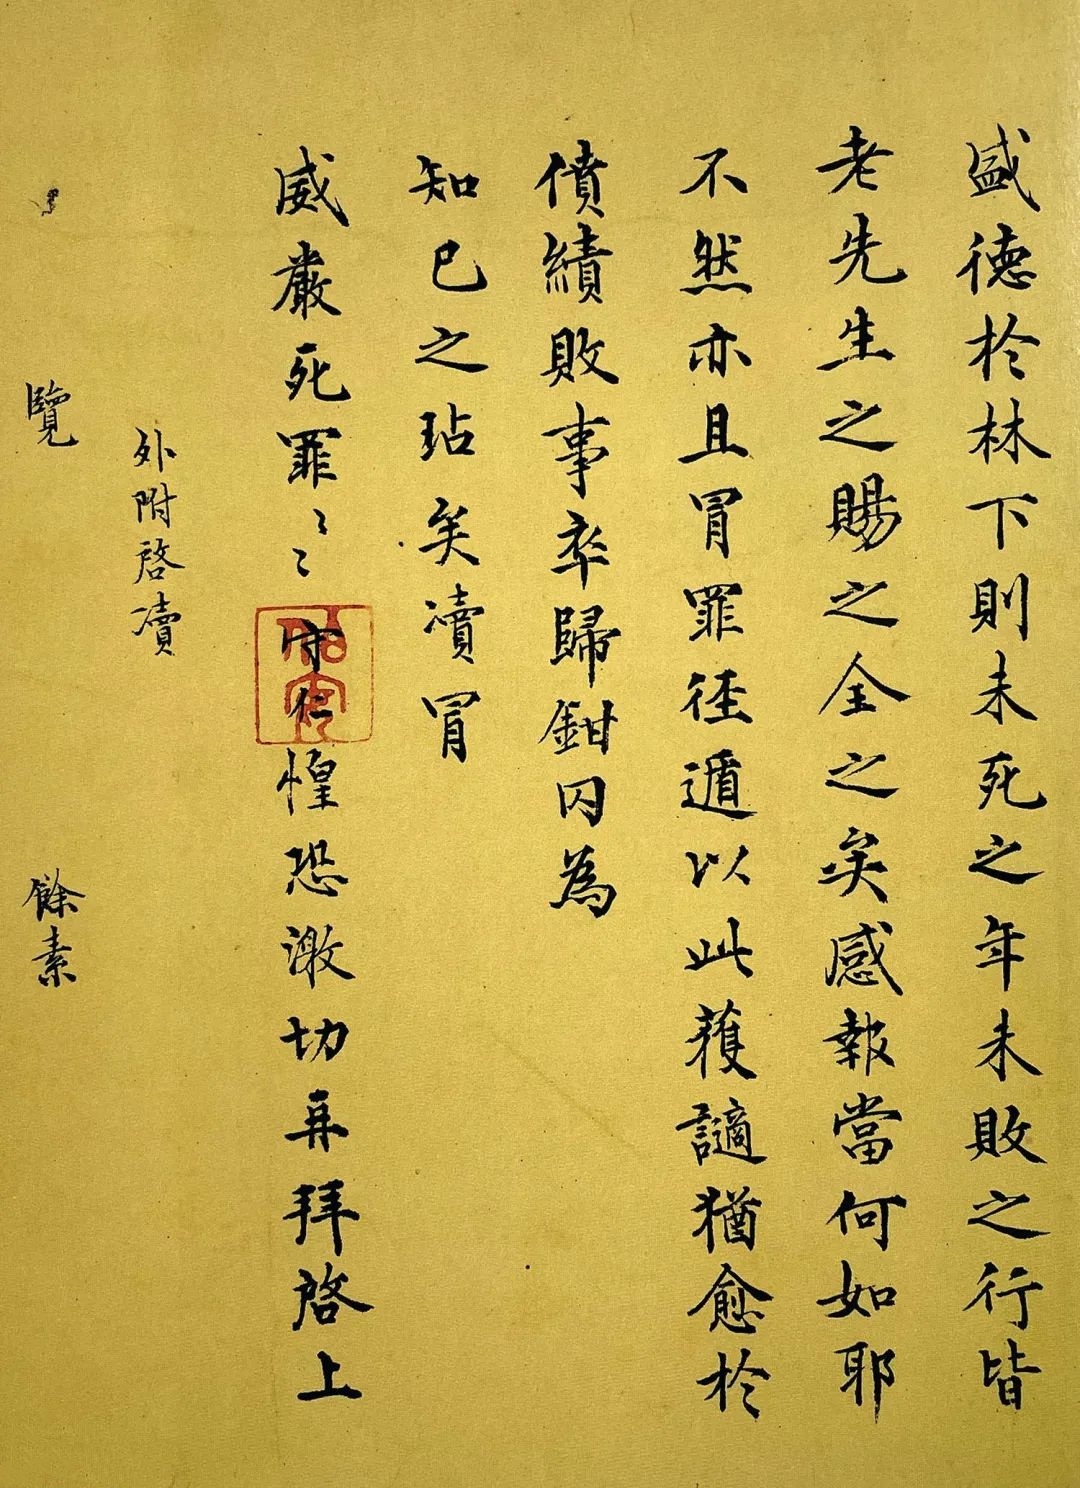 盛德於林下則未死之年未敗之行皆
老先生之賜之全之矣感報當何如耶
不然亦且冒罪徑遁以此獲謫猶愈於
僨績敗事卒歸鉗囚為
知己之玷矣瀆冒
威嚴死罪〻〻守仁惶恐激切再拜啓上
外附啓瀆
覽 餘素